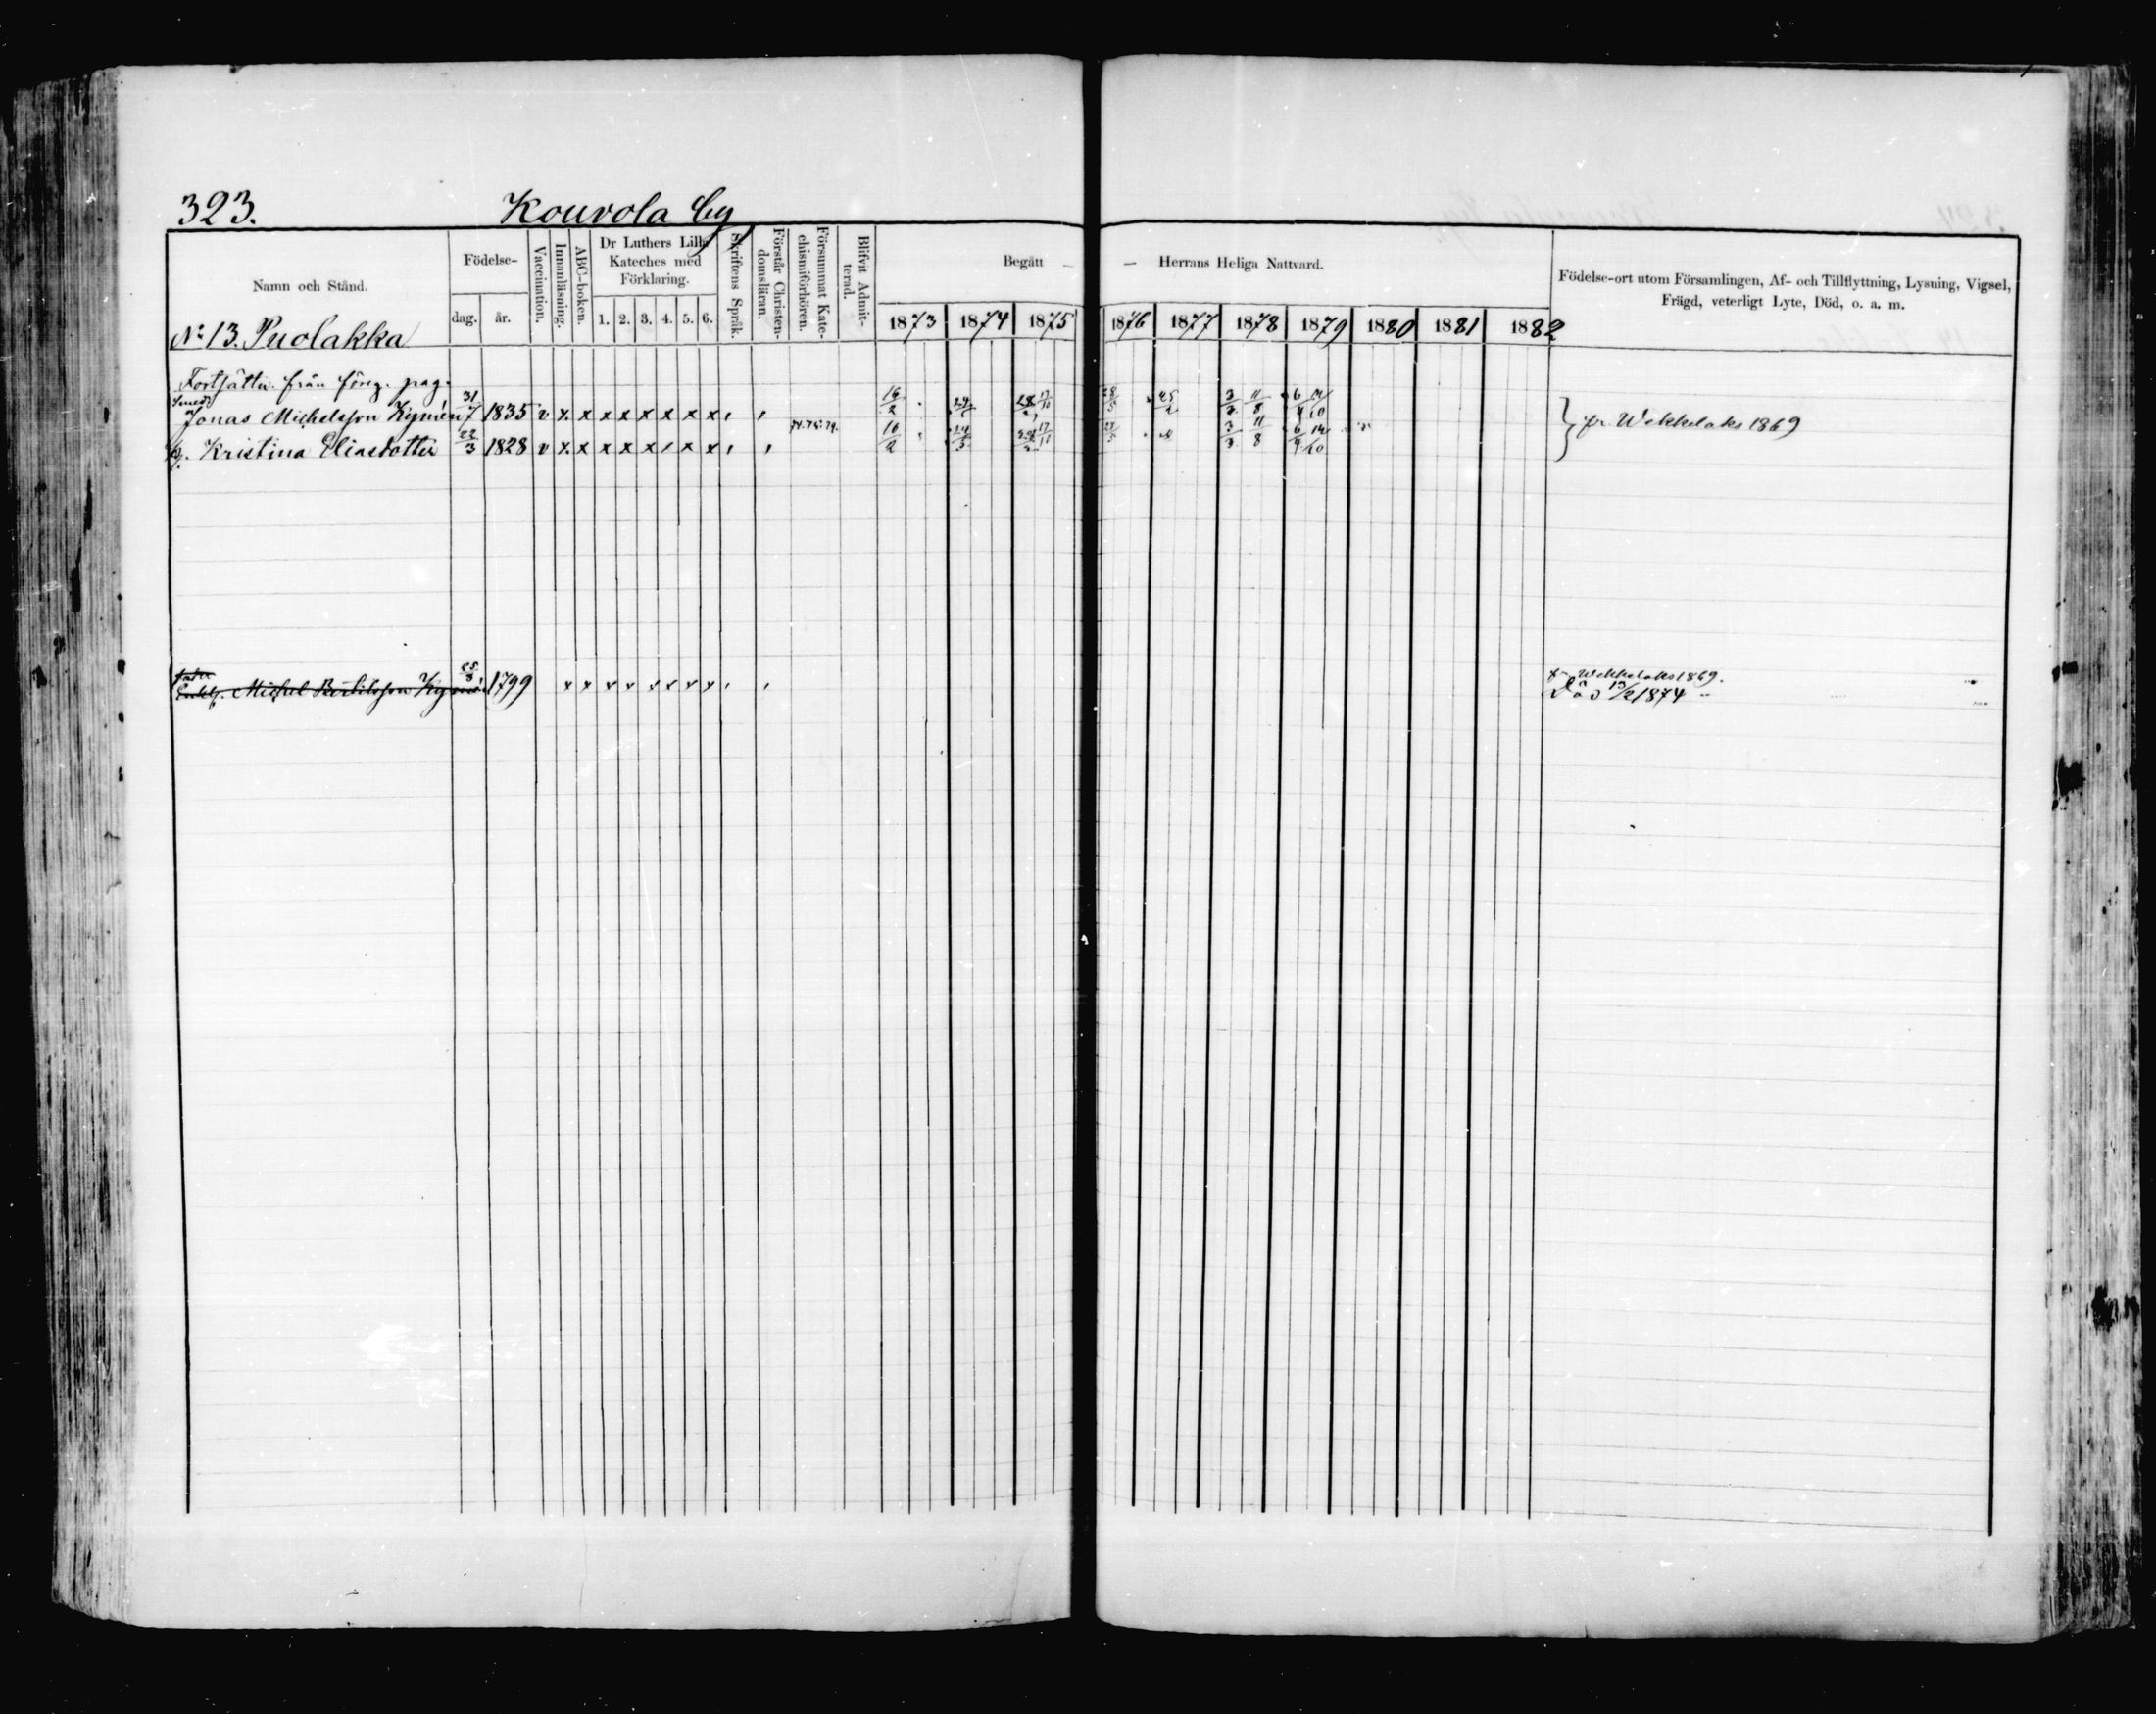 323. Kouvola by
Namn och Stånd.
Födelse-
dag. år.
Vaccination.
Innanläsning.
ABC-boken.
Dr Luthers Lilla
Kateches med
Förklaring.
1. 2. 3. 4. 5. 6.
Skriftens Språk.
Förstår Christen-
domsläran.
Försummat Kate-
chismiförhören.
Blifvit Admit-
terad.
Begått — — Herrans Heliga Nattvard.
1873 1874 1875 1876 1877 1878 1879 1880 1881 1882
Födelse-ort utom Församlingen, Af- och Tillflyttning, Lysning, Vigsel,
Frägd, veterligt Lyte, Död, o. a. m.
No 13. Puolakka
Fortsättn. från föreg. pag.
Smeds
Jonas Michelsson Kymén 31/7 1835 v x x x x x x x x 16/2 3/3 11/8 6/4 fr. Wekkelaks 1869
74. 75. 79.
h. Kristina Eliasdotter 22/3 1828 v x x x x x x x 16/2 24/3 3/3 11/8 6/4
fader
Enkl. Michel Bertilsson Kymén 25/8 1799 x x x x x x x x fr. Wekkelaks 1869.
Död 13/2 1874